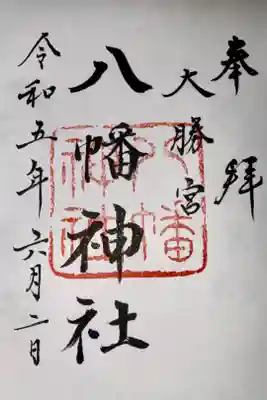 奉拝
大勝宮
八幡神社
令和五年六月二日
八幡神社